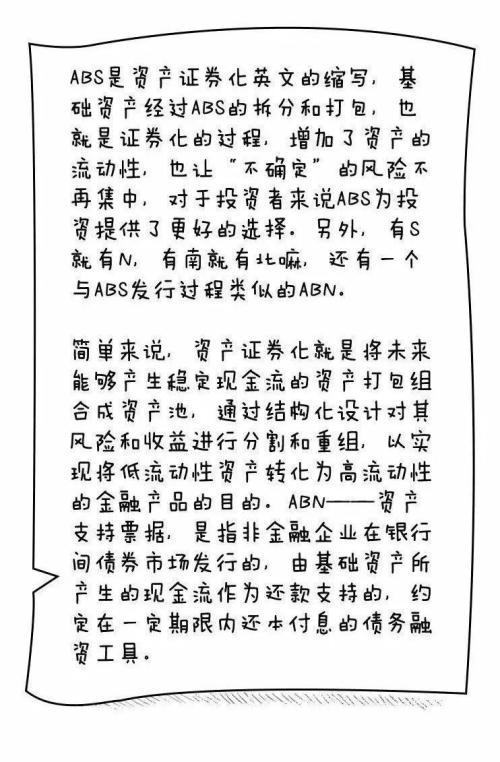 ABS是资产证券化英文的缩写，基
础资产经过ABS的拆分和打包，也
就是证券化的过程，增加了资产的
流动性，也让“不确定”的风险不
再集中，对于投资者来说ABS为投
资提供了更好的选择。另外，有S
就有N，有南就有北嘛，还有一个
与ABS发行过程类似的ABN。
简单来说，资产证券化就是将未来
能够产生稳定现金流的资产打包组
合成资产池，通过结构化设计对其
风险和收益进行分割和重组，以实
现将低流动性资产转化为高流动性
的金融产品的目的。ABN——资产
支持票据，是指非金融企业在银行
间债券市场发行的，由基础资产所
产生的现金流作为还款支持的，约
定在一定期限内还本付息的债务融
资工具。